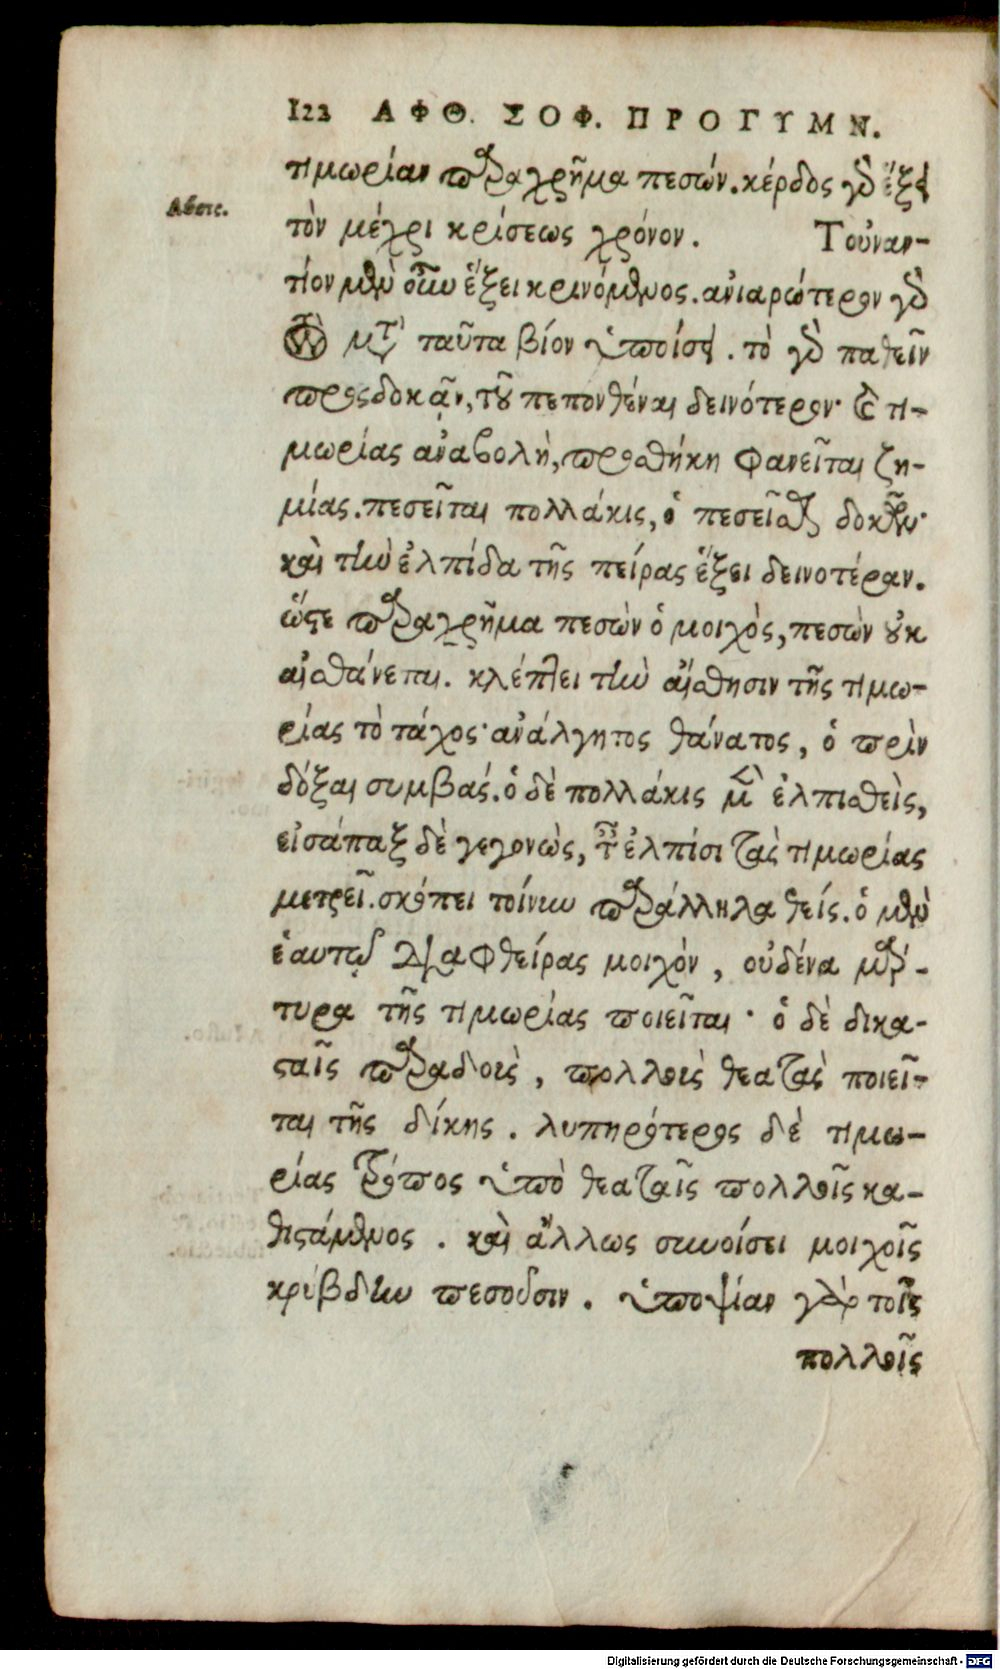 122 ΑΦΘ. ΣΟΦ. ΠΡΟΓΥΜΝ.
τιμωρίαν παραχρῆμα πεσών. κέρδος γὰρ ἕξει
Λύσις.
τὸν μέχρι κρίσεως χρόνον. Τοὐναν-
τίον μὲν οὖν ἕξει κρινόμενος. ἀνιαρώτερον γὰρ
τὸν μετὰ ταῦτα βίον ὑποίσει. τὸ γὰρ παθεῖν
προςδοκᾷν, τοῦ πεπονθέναι δεινότερον· καὶ τι-
μωρίας ἀναβολὴ, προσθήκη φανεῖται ζη-
μίας. πεσεῖται πολλάκις, ὁ πεσεῖσθαι δοκῶν·
καὶ τὴν ἐλπίδα τῆς πείρας ἕξει δεινοτέραν.
ὥςε παραχρῆμα πεσὼν ὁ μοιχὸς, πεσὼν οὐκ
αἰσθάνεται. κλέπτει τὴν αἴσθησιν τῆς τιμω-
ρίας τὸ τάχος· ἀνάλγητος θάνατος, ὁ πρὶν
δόξαι συμβάς. ὁ δὲ πολλάκις μὲν ἐλπισθεὶς,
εἰσάπαξ δὲ γεγονὼς, ταῖς ἐλπίσι τὰς τιμωρίας
μετρεῖ. σκόπει τοίνυν παράλληλα θείς. ὁ μὲν
ἑαυτῷ διαφθείρας μοιχὸν, οὐδένα μάρ-
τυρα τῆς τιμωρίας ποιεῖται· ὁ δὲ δικα-
ςαῖς παραδοὺς, πολλοὺς θεατὰς ποιεῖ-
ται τῆς δίκης. λυπηρότερος δὲ τιμω-
ρίας τρόπος ὑπὸ θεαταῖς πολλοῖς κα-
θιςάμενος. καὶ ἄλλως συνοίσει μοιχοῖς
κρύβδην πεσοῦσιν. ὑποψίαν γὰρ τοῖς
πολλοῖς
Digitalisierung gefördert durch die Deutsche Forschungsgemeinschaft - DFG